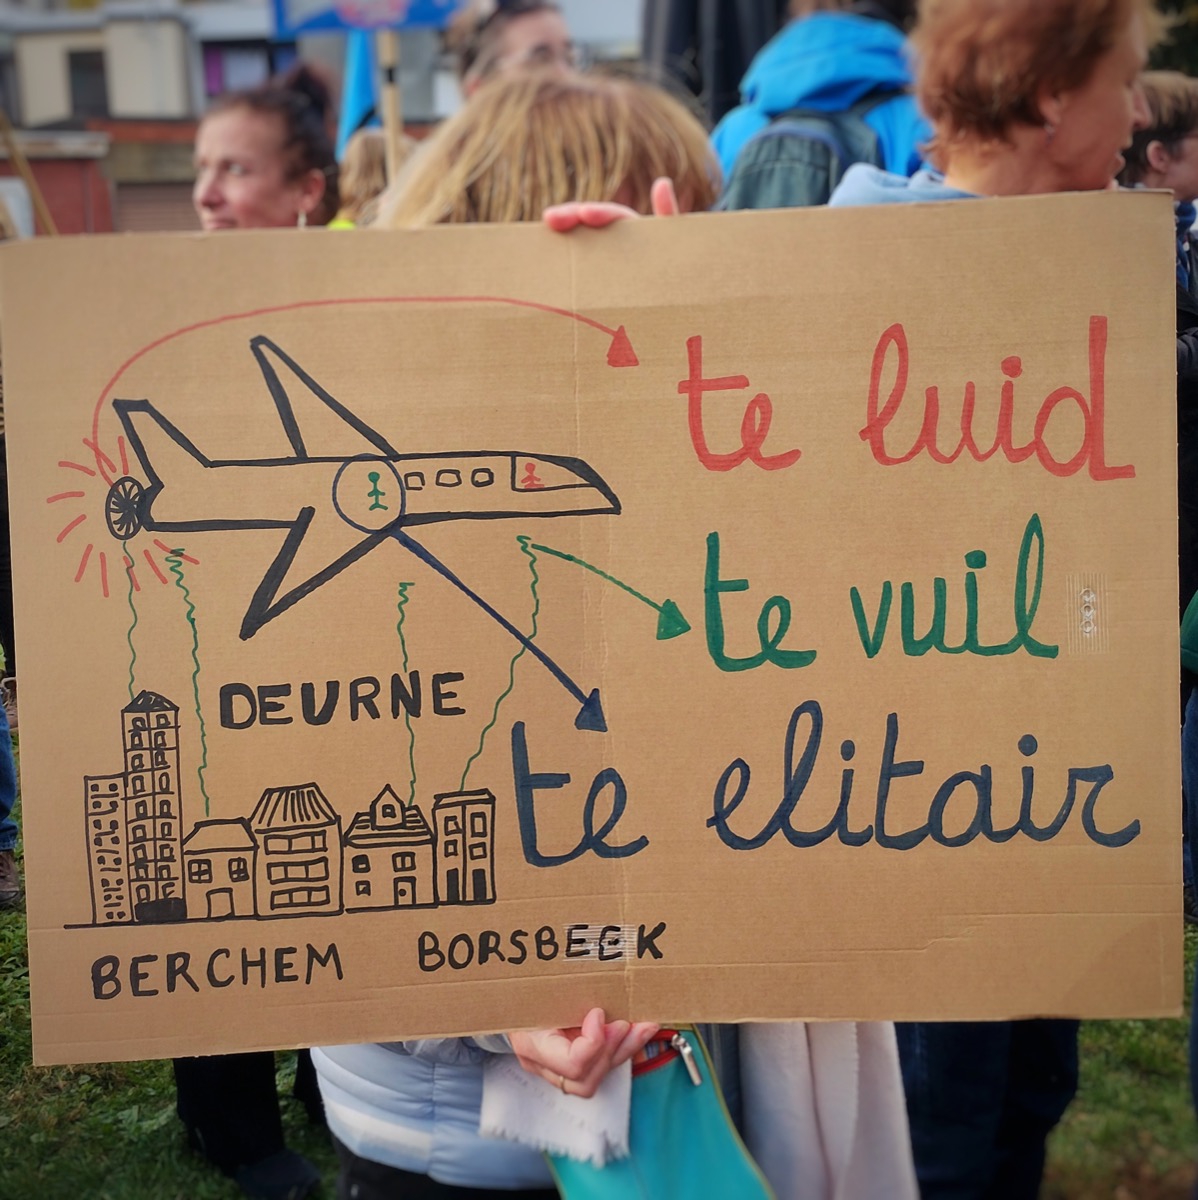 te luid
te vuil
DEURNE
te elitair
BERCHEM
BORSBEEK